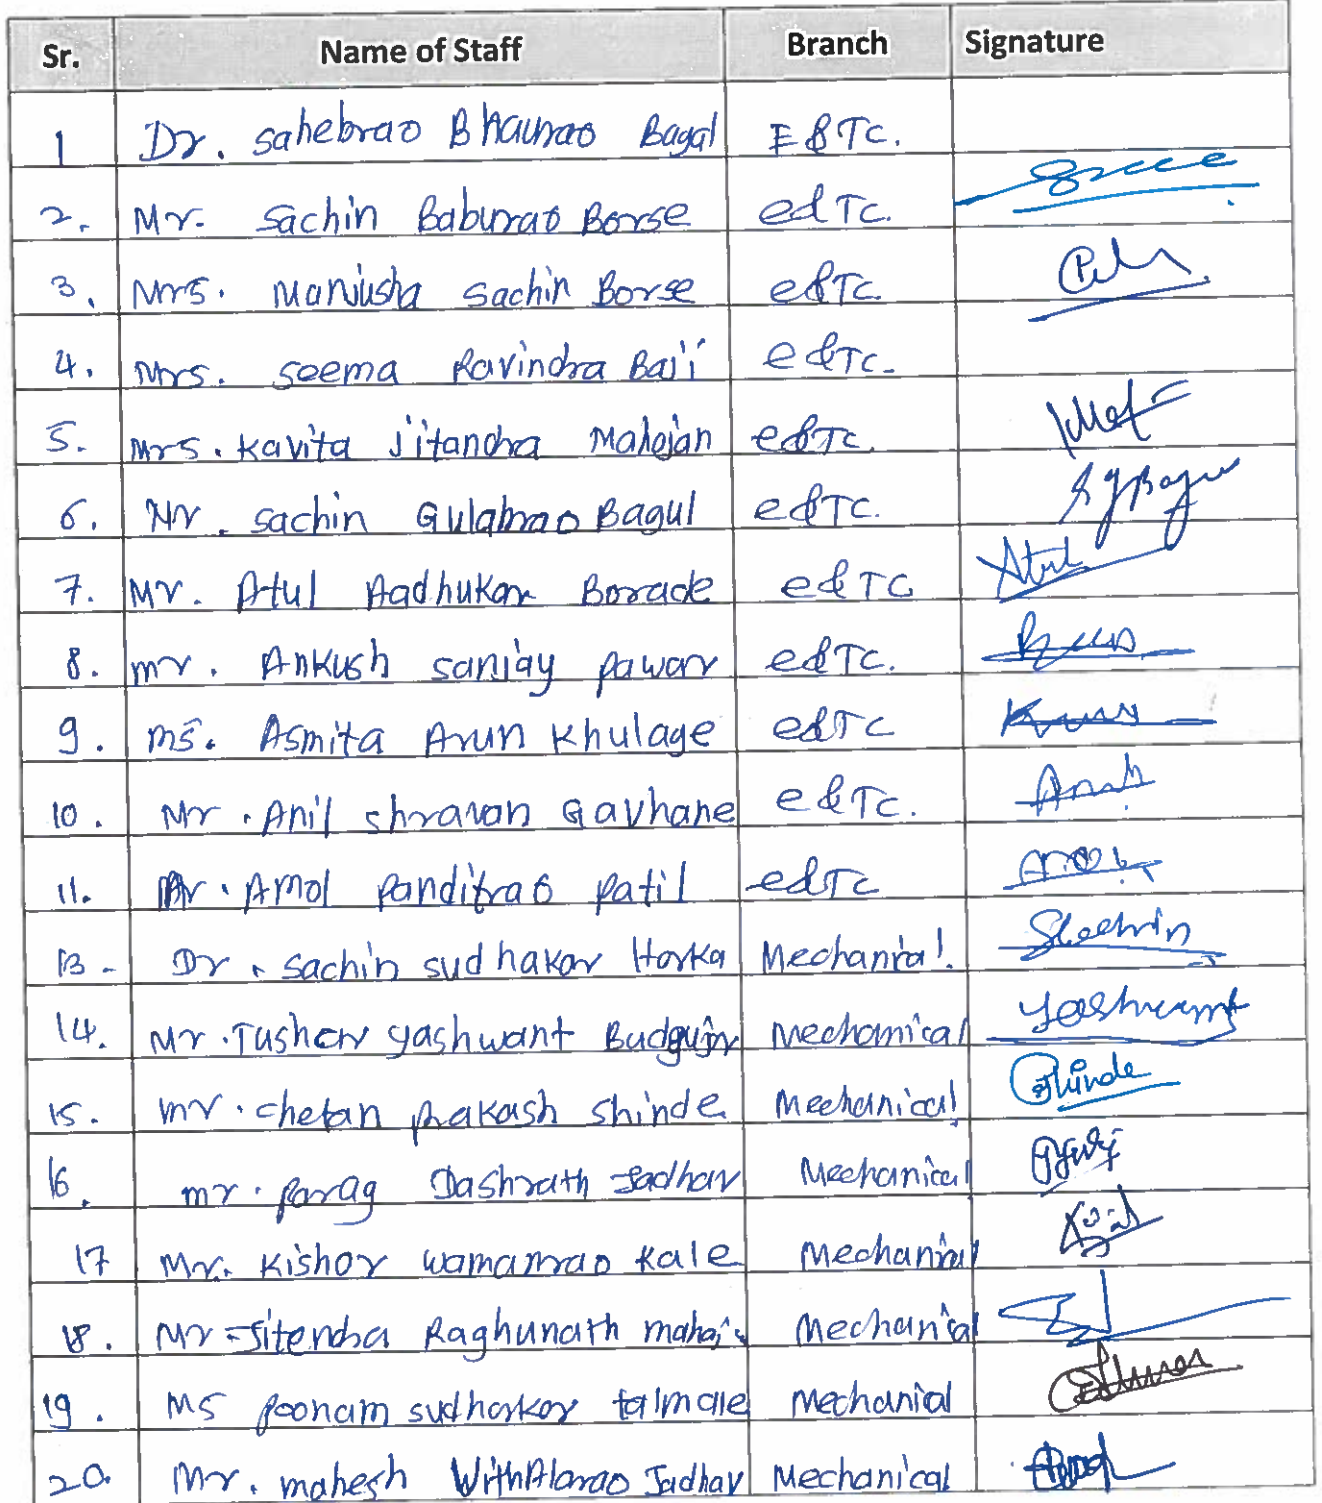 Sr. Name of Staff Branch Signature
1 Dr. Sahebrao Bhaurao Bagal E&Tc.
2. Mr. Sachin Baburao Borse e&Tc.
3. Mrs. Manjusha Sachin Borse e&Tc.
4. Mrs. Seema Ravindra Bari e&Tc.
5. Mrs. Kavita Jitandra Mahajan e&Tc.
6. Mr. Sachin Gulabrao Bagul e&Tc. SGBagul
7. Mr. Atul Madhukar Borade e&TC Atul
8. mr. Ankush sanjay pawar e&Tc.
9. ms. Asmita Arun Khulage e&Tc
10. Mr. Anil shravan Gavhane e&Tc.
11. Mr. Amol Panditrao patil e&Tc
13- Dr. sachin sudhakar Mechanical.
14. Mr. Tushar yashwant Mechanical Yashwant
15. mr. chetan prakash shinde Mechanical Shinde
16. mr. parag Dashrath Jadhav Mechanical
17 Mr. Kishor wamanrao Kale Mechanical
18. Mr. Jitendra Raghunath Mechanical
19. Ms poonam sudharkar talmale Mechanial
20. Mr. mahesh Jadhav Mechanical